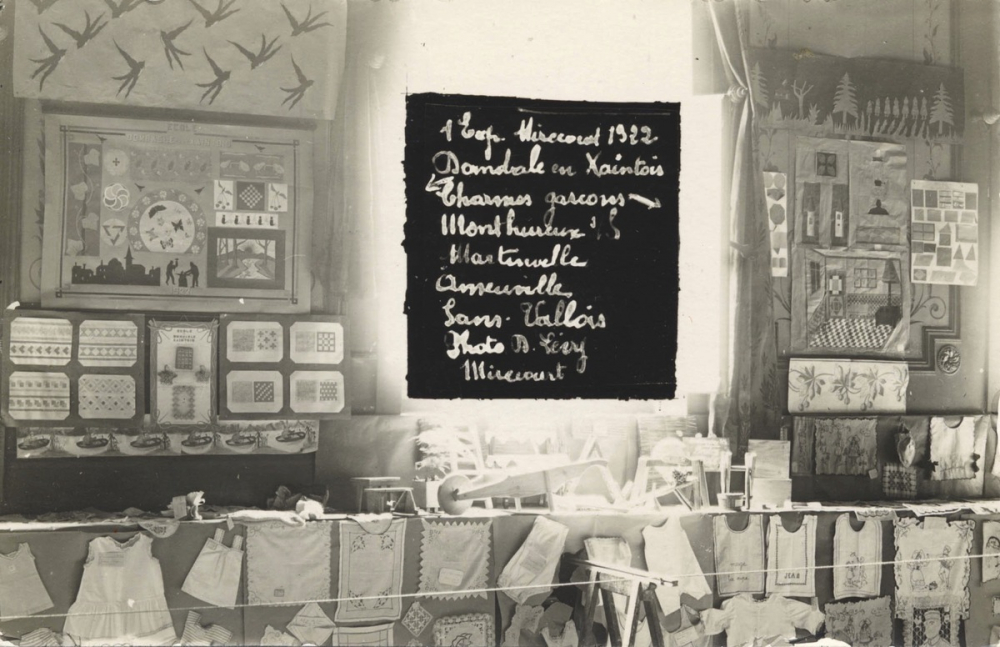 1 Exp. Mirecourt 1922
Domvale en Xaintois
Charmes garcons
Monthureux s/S
Martinvelle
Ameuvelle
Sans-Vallois
Photo D. Lévy
Mirecourt